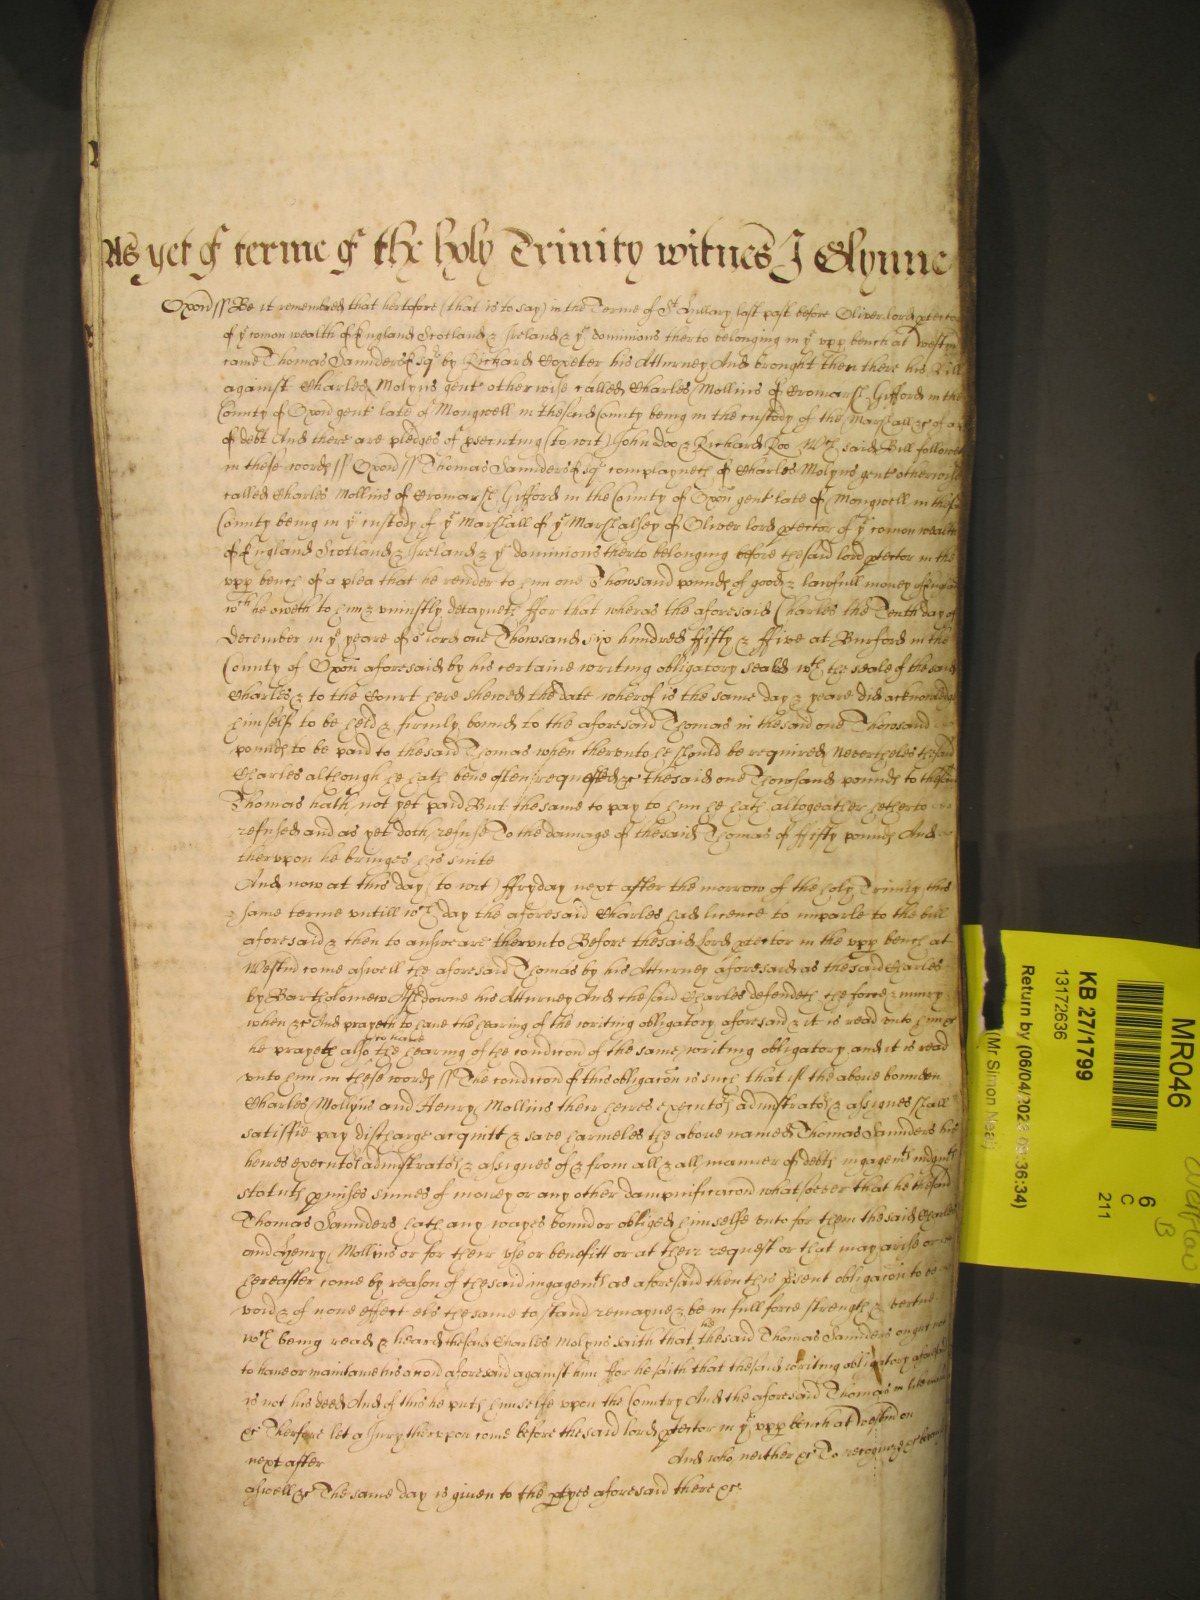 As yet of terme of the holy Trinity witnes J Glynne
Oxon ss Be it remembred that hertofore (that is to say) in the Terme of St Hillary last past before Oliver lord ptector
of ye comon wealth of England Scotland & Ireland & ye dominions therto belonging in ye upp bench at Westm
came Thomas Saunders Esqr by Richard Coxeter his Atturney And brought then there his Bill
against Charles Molyns gent otherwise called Charles Mollins of Cromarsh Gifford in the
County of Oxon gent late of Mongwell in the said County being in the custody of the Marshall &c of a
of debt And there are pledges of psecuting (to wit) John Doo & Richard Roo Wch said Bill followeth
in these words ss Oxon ss Thomas Saunders Esqr complayneth of Charles Molyns gent otherwise
called Charles Mollins of Cromarsh Gifford in the County of Oxon gent late of Mongwell in the said
County being in ye custody of ye Marshall of ye Marshalsey of Oliver lord ptector of ye comon wealth
of England Scotland & Ireland & ye dominions therto belonging before the said lord ptector in the
upp bench of a plea that he render to him one Thowsand pounds of good & lawfull money of England
wch he oweth to him & uniustly detayneth ffor that wheras the aforesaid Charles the Tenth day of
December in ye yeare of or lord one Thowsand six hundred ffifty & ffive at Burford in the
County of Oxon aforesaid by his certaine writing obligatory sealed wth the seale of the said
Charles & to the Court here shewed the date wherof is the same day & yeare did acknowledge
himself to be held & firmly bound to the aforesaid Thomas in the said one Thowsand
pounds to be paid to the said Thomas when therunto he should be required Neverthelesse the said
Charles although he hath bene often requested &c the said one Thowsand pounds to the said
Thomas hath not yet paid But the same to pay to him he hath altogeather hetherto
refused and as yet doth refuse To the damage of the said Thomas of ffifty pounds And
therupon he bringes his suite
And now at this day (to wit) ffryday next after the morrow of the holy Trinity this
same terme untill wch day the aforesaid Charles had licence to imparle to the bill
aforesaid & then to answeare therunto Before the said lord ptector in the upp bench at
Westm come aswell the aforesaid Thomas by his Atturney aforesaid as the said Charles
by Bartholomew Ashdowne his Atturney And the said Charles defendeth the force & iniury
when &c And prayeth to have the hearing of the writing obligatory aforesaid & it is read unto him &c
he prayeth also to have the hearing of the condicon of the same writing obligatory and it is read
unto him in these words ss The condicon of this obligacon is such that if the above bounden
Charles Mollyns and Henry Mollins their heires executors administrators & assignes shall
satisfie pay discharge acquitt & save harmeles the above named Thomas Saunders his
heires executors administrators & assignes of & from all & all manner of debts ingagemts iudgmts
statuts pmises summes of money or any other dampnificacon whatsoever that he the said
Thomas Saunders hath any wayes bound or obliged himselfe unto for them the said Charles
and Henry Mollyns or for their use or benefitt or at their request or that may arise or
hereafter come by reason of the said ingagemts as aforesaid then this psent obligacon to be
void & of none effect els the same to stand remayne & be in full force strength & vertue
wch being read & heard the said Charles Molyns saith that the said Thomas Saunders ought not
to have or maintaine his accon aforesaid against him ffor he saith that the said writing obligatory aforesaid
is not his deed And of this he puts himselfe upon the Country And the aforesaid Thomas in like
&c Therfore let a Iury therupon come before the said lord ptector in ye upp bench at Westm on
next after And who neither &c To recognize &c because
aswell &c The same day is given to the ptyes aforesaid there &c.
MR046
KB 27/1799
13172636
6
C
211
Return by (06/04/2023 09:36:34)
(Mr Simon Neal)